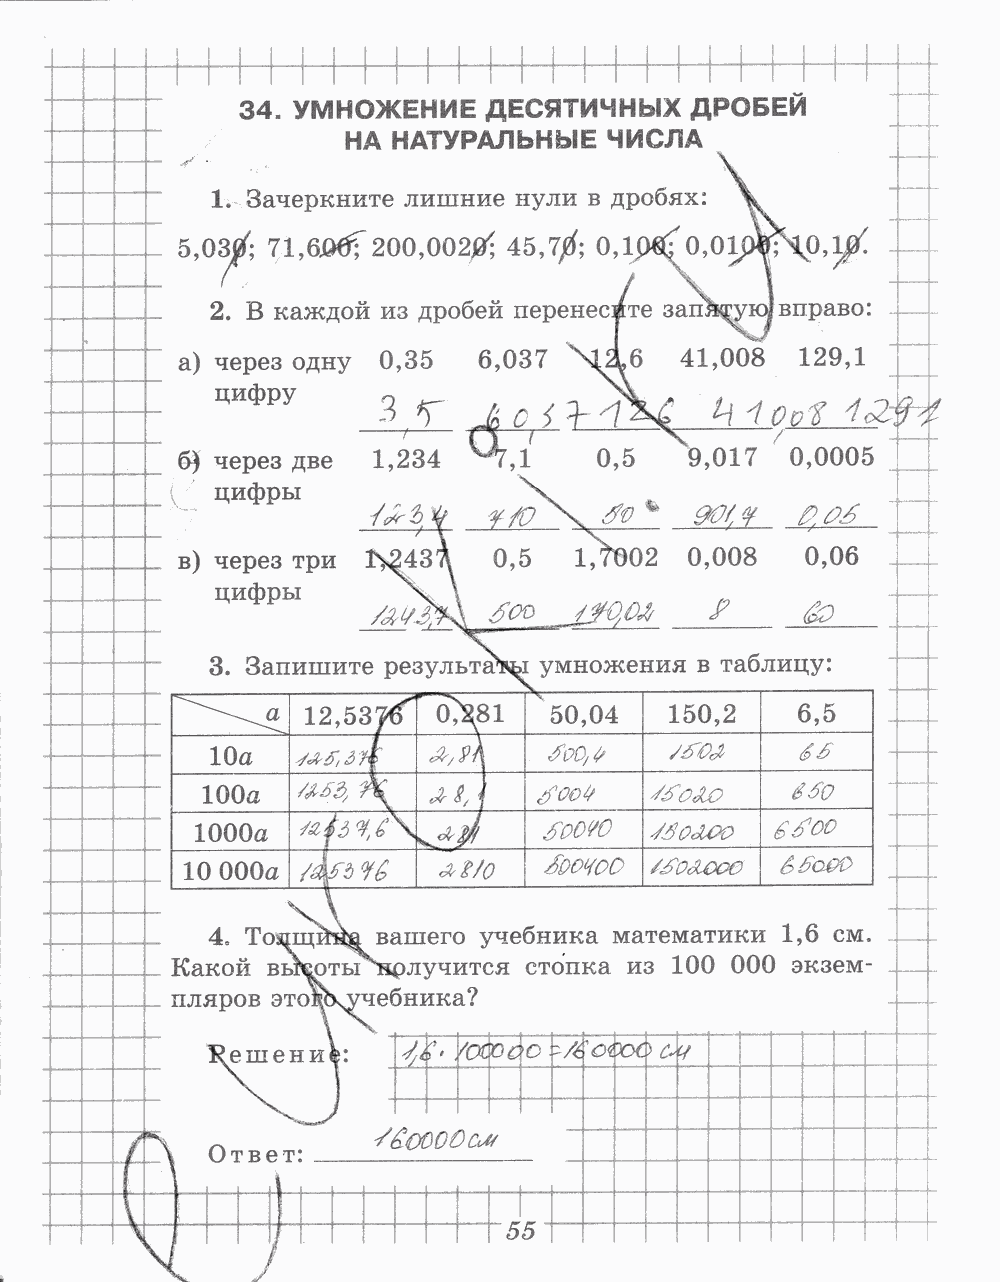 34. УМНОЖЕНИЕ ДЕСЯТИЧНЫХ ДРОБЕЙ
НА НАТУРАЛЬНЫЕ ЧИСЛА
1. Зачеркните лишние нули в дробях:
5,030; 71,600; 200,0020; 45,70; 0,100; 0,0100; 10,10.
2. В каждой из дробей перенесите запятую вправо:
а) через одну 0,35 6,037 12,6 41,008 129,1
цифру
3,5 60,37 126 410,08 1291
б) через две 1,234 7,1 0,5 9,017 0,0005
цифры
123,4 710 50 901,7 0,05
в) через три 1,2437 0,5 1,7002 0,008 0,06
цифры
1243,7 500 1700,2 8 60
3. Запишите результаты умножения в таблицу:
a 12,5376 0,281 50,04 150,2 6,5
10a 125,376 2,81 500,4 1502 65
100a 1253,76 28,1 5004 15020 650
1000a 12537,6 281 50040 150200 6500
10 000a 125376 2810 500400 1502000 65000
4. Толщина вашего учебника математики 1,6 см.
Какой высоты получится стопка из 100 000 экзем-
пляров этого учебника?
Решение: 1,6 · 100000 = 160000 см
Ответ: 160000 см
55